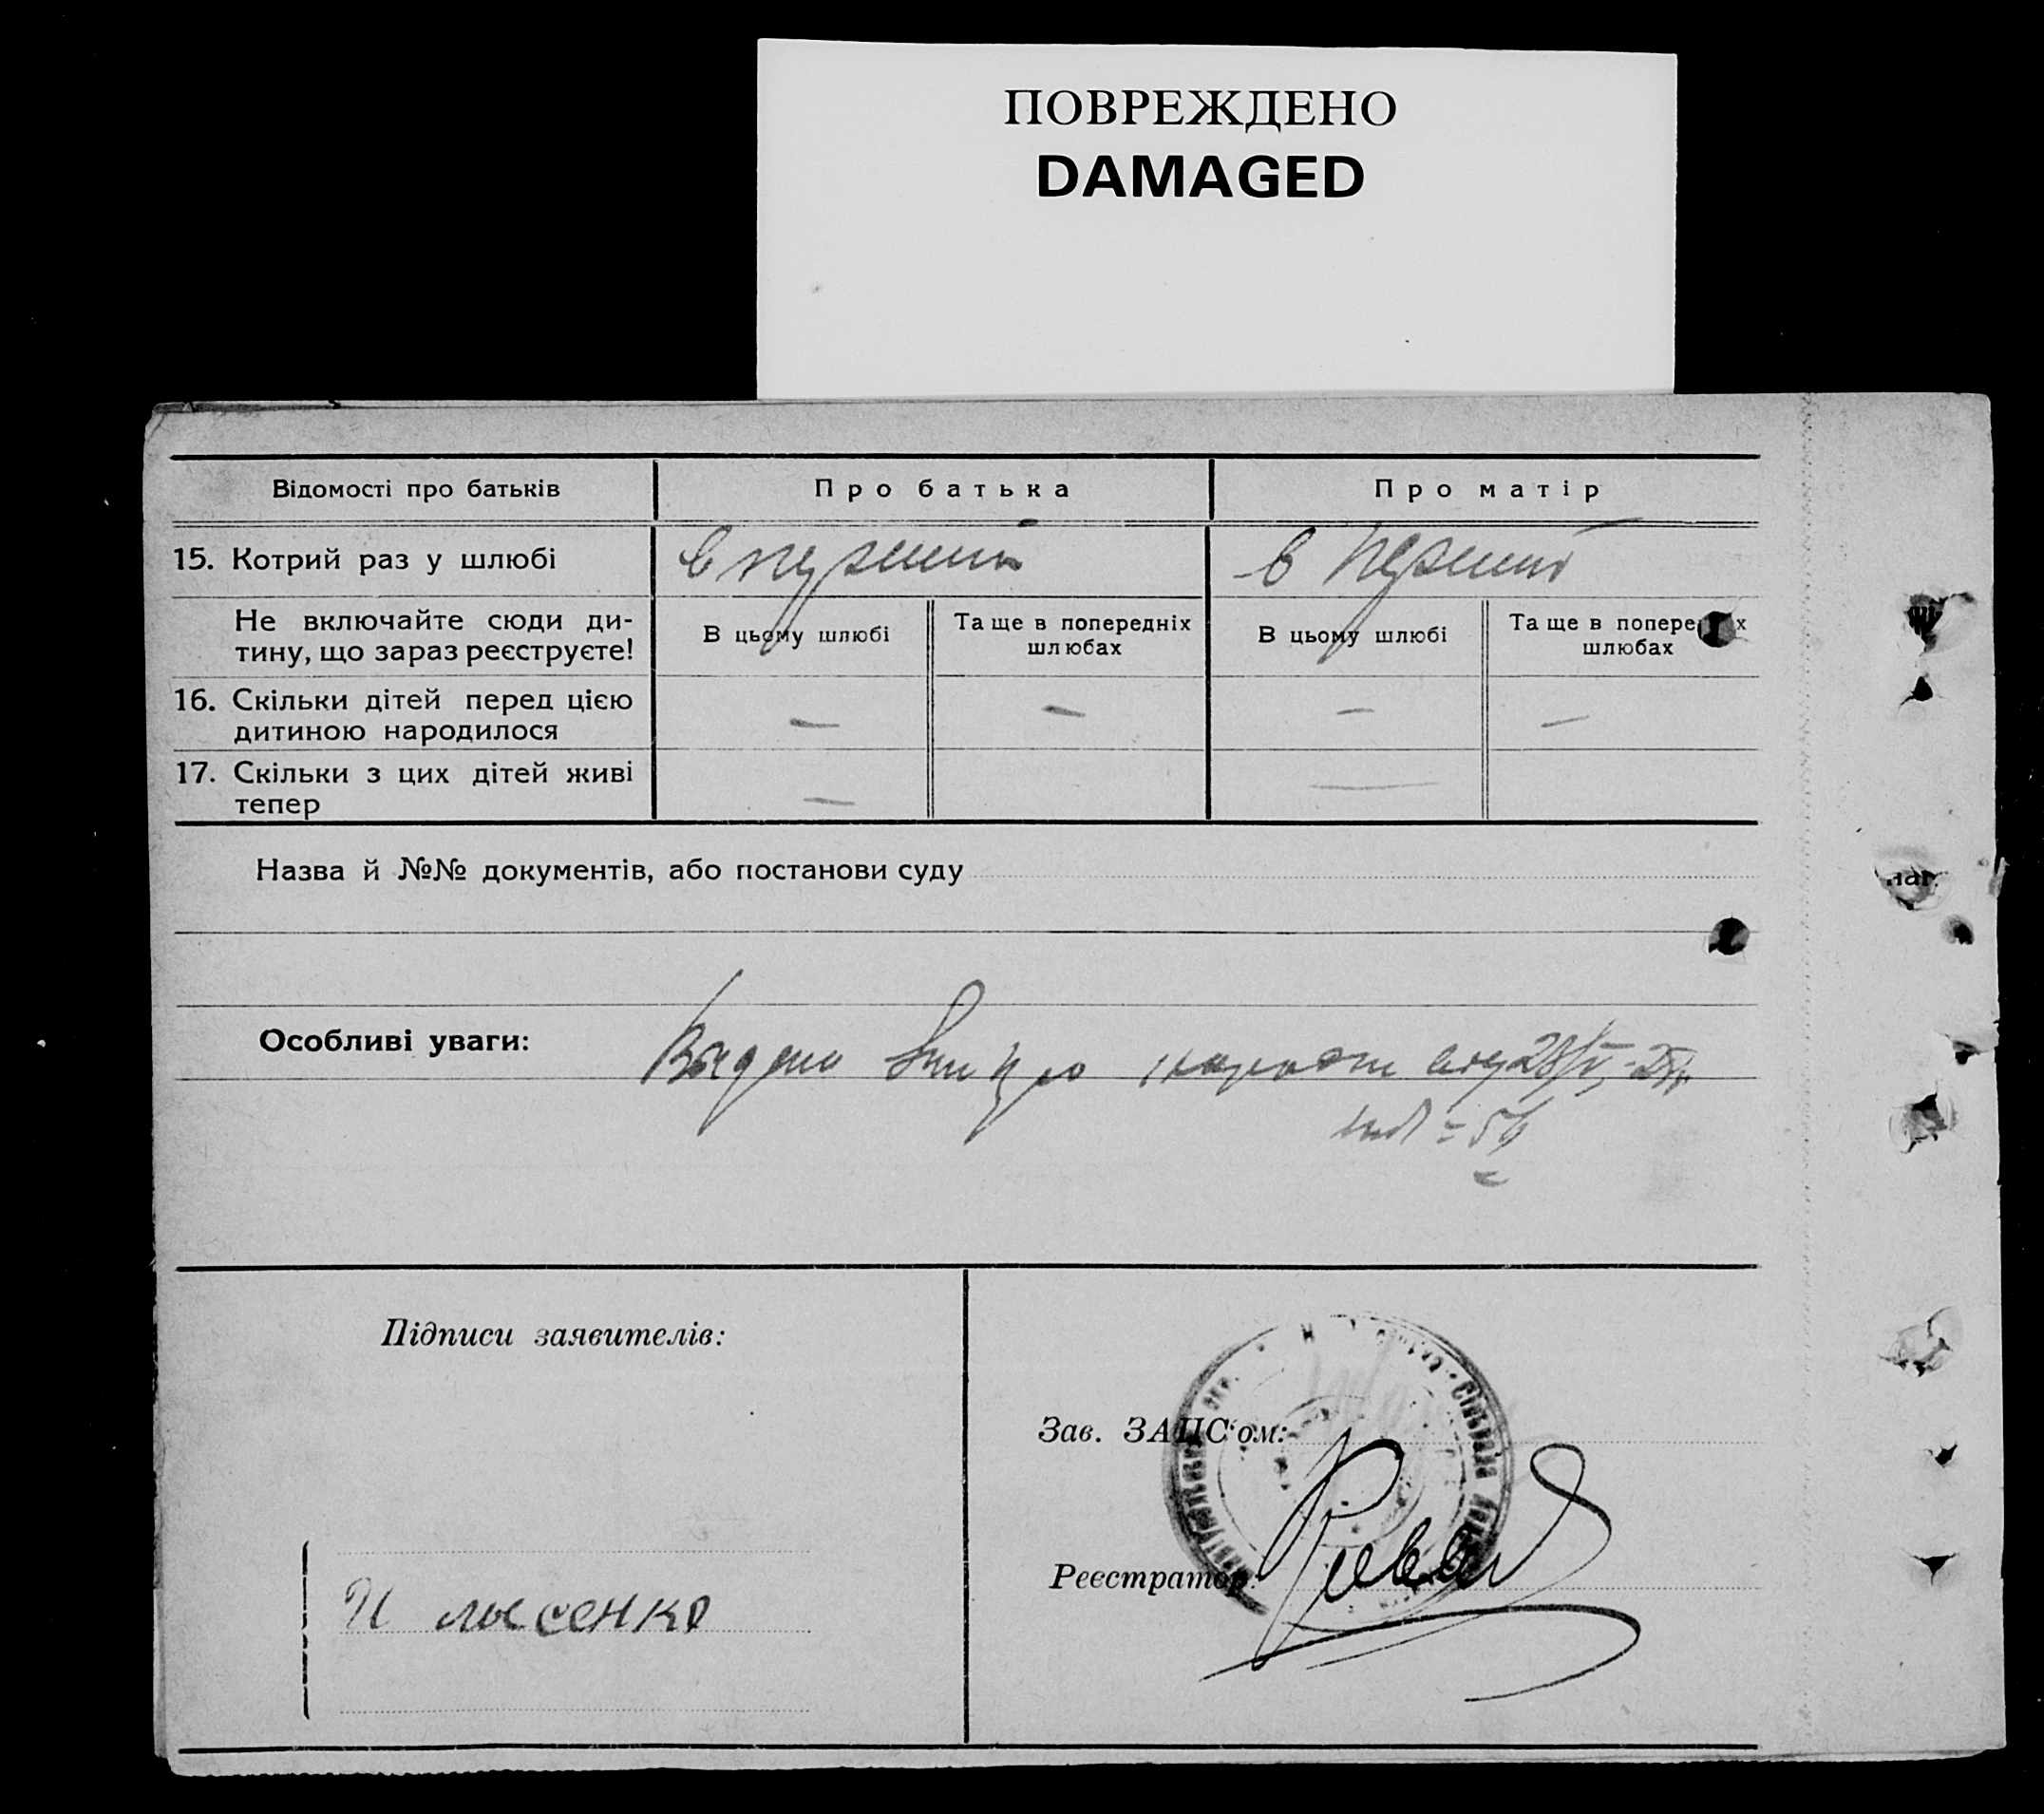 ПОВРЕЖДЕНО
DAMAGED
Відомості про батьків
Про батька
Про матір
15. Котрий раз у шлюбі
в перший
в перший
Не включайте сюди ди-
тину, що зараз реєструєте!
В цьому шлюбі
Та ще в попередніх
шлюбах
В цьому шлюбі
Та ще в попере х
шлюбах
16. Скільки дітей перед цією
дитиною народилося
—
—
—
—
17. Скільки з цих дітей живі
тепер
—
—
Назва й №№ документів, або постанови суду
Особливі уваги:
Видано
Підписи заявителів:
Зав. ЗАПС'ом:
Реєстратор:
Сільрада